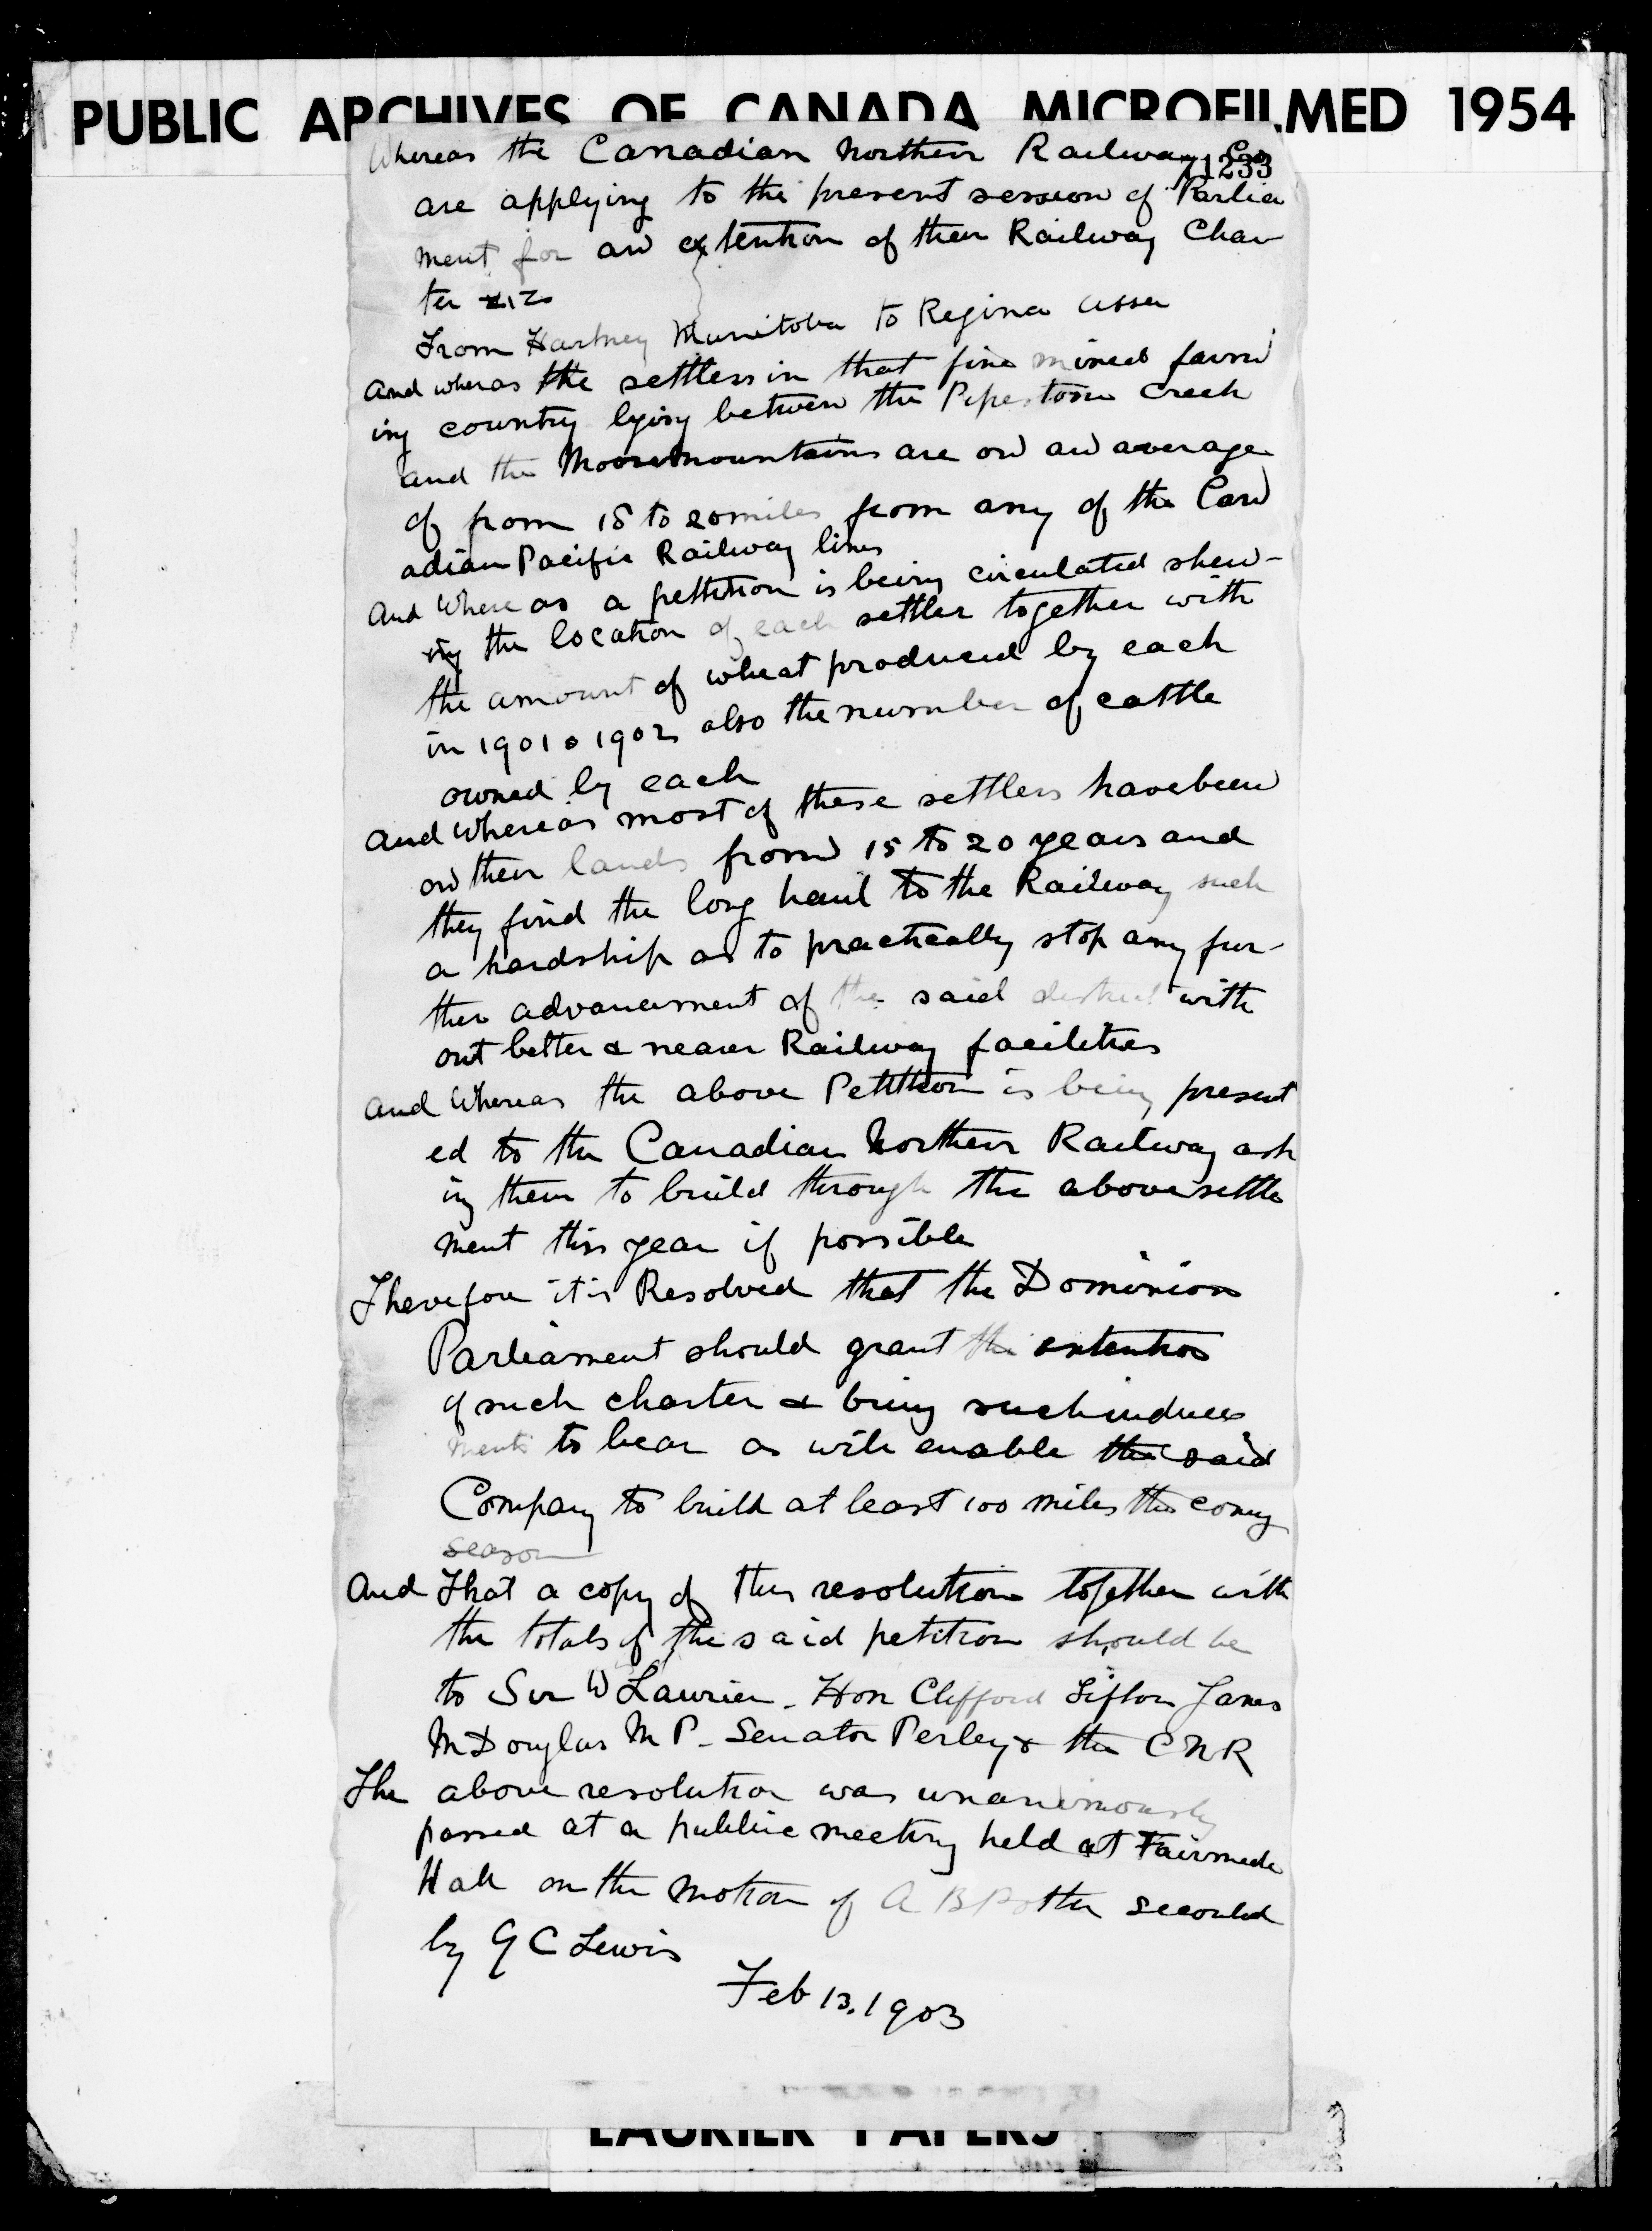 PUBLIC ARCHIVES OF CANADA MICROFILMED 1954
71233
Whereas the Canadian Northern Railway Co
are applying to the present session of Parlia
ment for an extention of their Railway Char
ter viz
From Hartney Manitoba to Regina Assa
And whereas the settlers in that fine mixed farm
ing country lying between the Pipestone Creek
and the Moosemountains are on an average
of from 18 to 20 miles from any of the Can
adian Pacific Railway lines
And Whereas a pettition is being circulated shew-
ing the location of each settler together with
the amount of wheat produced by each
in 1901 & 1902 also the number of cattle
owned by each
And Whereas most of these settlers have been
on their lands from 15 to 20 years and
they find the long haul to the Railway such
a hardship as to practically stop any fur-
ther advancement of the said district with
out better & nearer Railway facilities
And Whereas the above Petition is being present
ed to the Canadian Northern Railway ask
ing them to build through the above settle
ment this year if possible
Therefore it is Resolved that the Dominion
Parliament should grant the extention
of such charter & bring such induce
ments to bear as will enable the said
Company to build at least 100 miles the coming
season
And That a copy of this resolution together with
the totals of the said petition should be
to Sir W Laurier - Hon Clifford Sifton James
M Douglas M P - Senator Perley & the CNR
The above resolution was unanimously
passed at a public meeting held at Fairmede
Hall on the motion of A B Potter seconded
by G C Lewis
Feb 13. 1903
LAURIER PAPERS